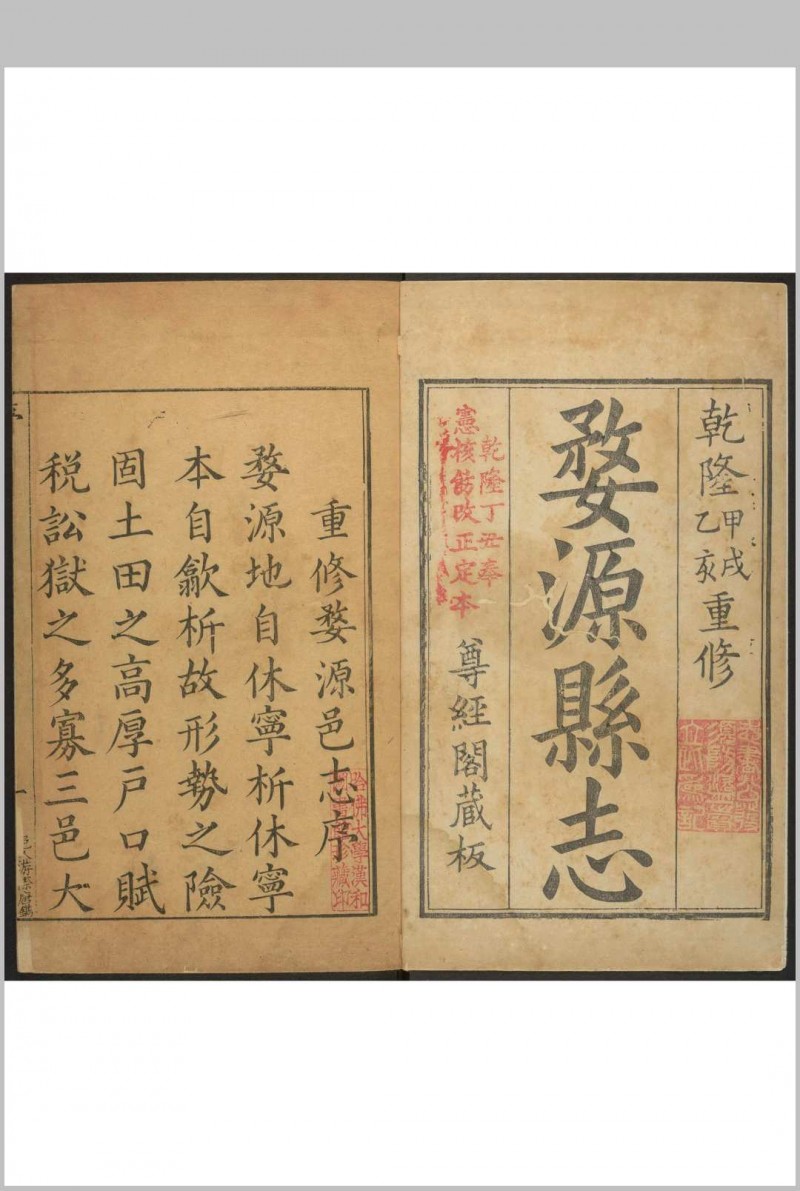 乾隆甲戌乙亥重修
婺源縣志
乾隆丁丑奉
憲核飭改正定本
尊經閣藏板
重修婺源邑志序
婺源地自休寧析休寧
本自歙析故形勢之險
固土田之高厚戶口賦
稅訟獄之多寡三邑大
哈佛大學漢和
藏印